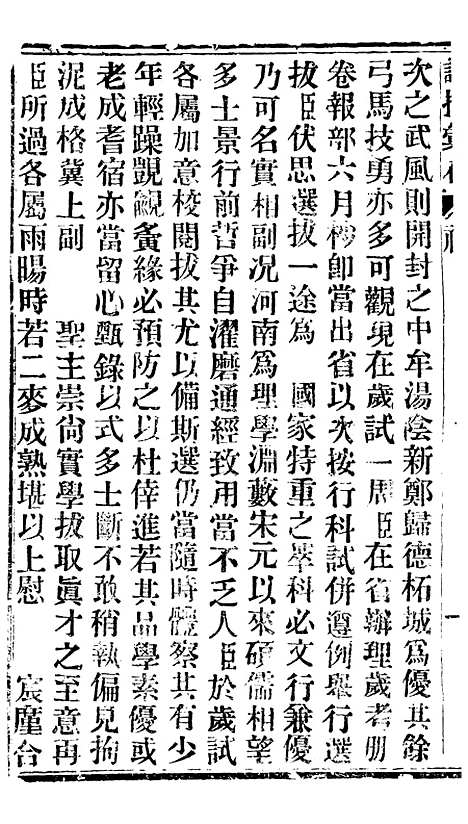 次之武風則開封之中牟湯陰新鄭歸德柘城爲優其餘
弓馬技勇亦多可觀現在歲試一周臣在省辦理歲考册
卷報部六月杪卽當出省以次按行科試併遵例舉行選
拔臣伏思選拔一途爲 國家特重之舉科必文行兼優
乃可名實相副况河南爲理學淵藪朱元以來碩儒相望
多士景行前哲爭自濯磨通經致用當不乏人臣於歲試
各屬加意校閱拔其尤以備斯選仍當隨時體察其有少
年輕躁覬覦夤緣必預防之以杜倖進若其品學素優或
老成耆宿亦當留心甄錄以式多士斷不敢稍執偏見拘
泥成格冀上副 聖主崇尚實學拔取眞才之至意再
臣所過各屬雨暘時若二麥成熟堪以上慰 宸廑合